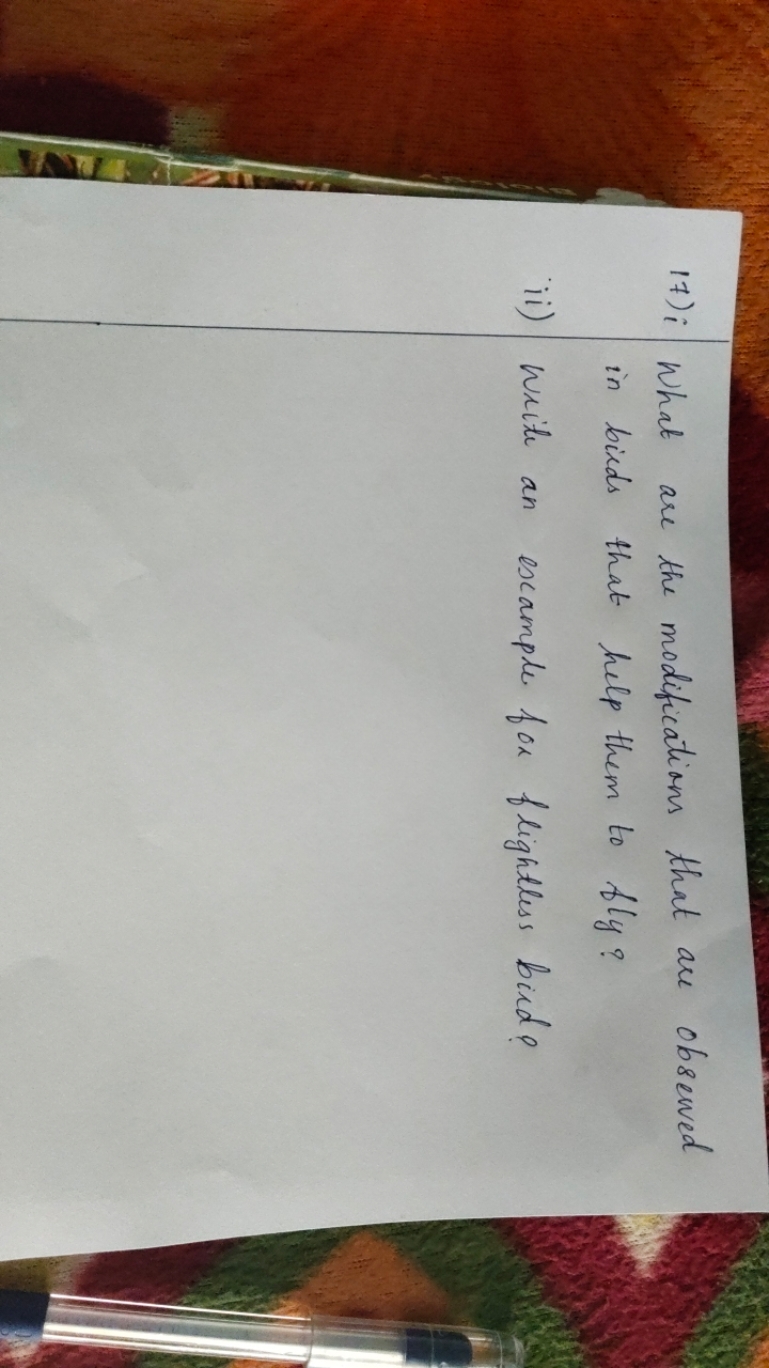 BIOLOGY
17) i What are the modifications that are observed
in birds that help them to fly?
ii) Write an example for flightless bird?